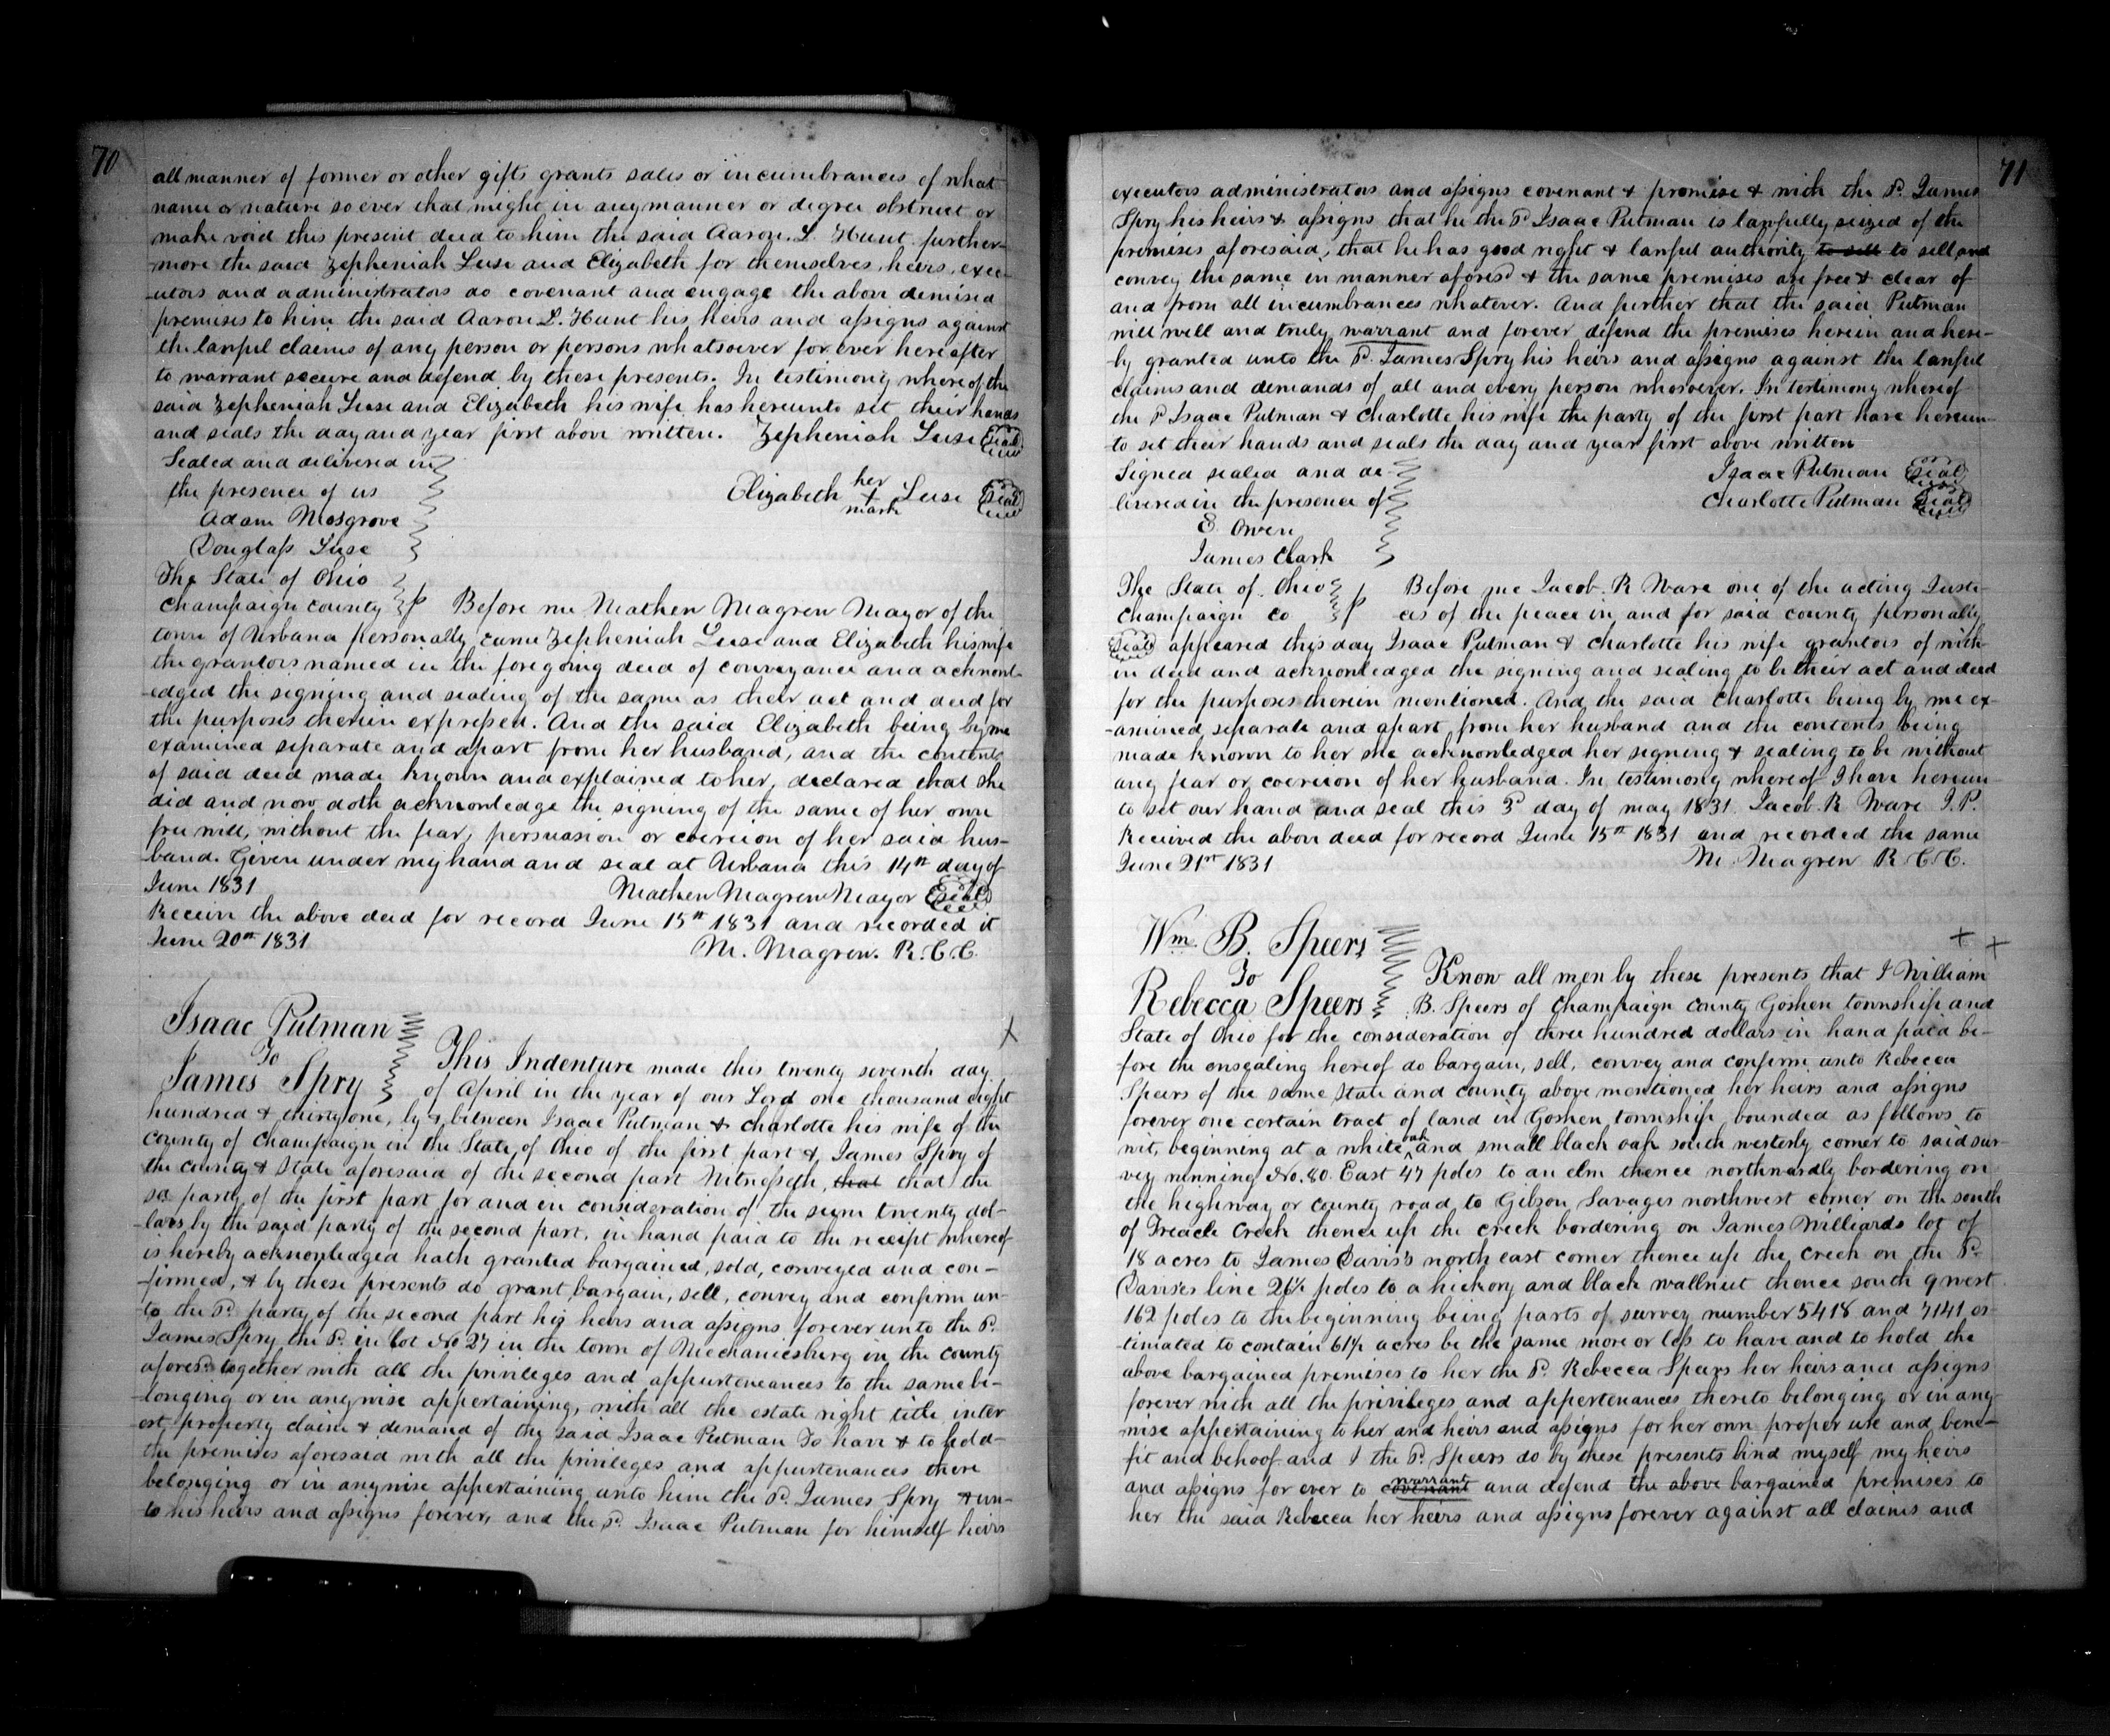 70
all manner of former or other gifts grants sales or incumbrances of what
name or nature soever that might in any manner or degree obstruct or
make void this present deed to him the said Aaron. L. Hunt. further-
more the said Zepheniah Luse and Elizabeth for themselves, heirs, exec-
utors and administrators do covenant and engage the above demised
premises to him the said Aaron L. Hunt his heirs and assigns against
the lawful claims of any person or persons whatsoever for ever hereafter
to warrant secure and defend by these presents. In testimony where of the
said Zepheniah Luse and Elizabeth his wife has hereunto set their hands
and seals the day and year first above written. Zepheniah Luse Seal
Sealed and delivered in
the presence of us
Elizabeth her + mark Luse Seal
Adam Mosgrove
Douglass Luse
The State of Ohio
Champaign County ss Before me Mathew Magrew Mayor of the
town of Urbana personally came Zepheniah Luse and Elizabeth his wife
the grantors named in the foregoing deed of conveyance and acknowl-
edged the signing and sealing of the same as their act and deed for
the purposes therein expressed. And the said Elizabeth being by me
examined separate and apart from her husband, and the contents
of said deed made known and explained to her, declared that she
did and now doth acknowledge the signing of the same of her own
free will, without the fear, persuasion or coercion of her said hus-
band. Given under my hand and seal at Urbana this 14th day of
June 1831
Mathew Magrew Mayor Seal
Receive the above deed for record June 15th 1831 and recorded it
June 20th 1831
M. Magrew. R.C.C.
Isaac Putman
To
James Spry
This Indenture made this twenty seventh day
of April in the year of our Lord one thousand eight
hundred & thirty one, by & between Isaac Putman & Charlotte his wife of the
county of Champaign in the State of Ohio of the first part &, James Spry of
the county & State aforesaid of the second part Witnesseth, that that the
sd party of the first part for and in consideration of the sum twenty dol-
lars by the said party of the second part, in hand paid to the receipt whereof
is hereby acknowledged hath granted bargained, sold, conveyed and con-
firmed, & by these presents do grant, bargain, sell, convey and confirm un-
to the Sd. party of the second part his heirs and assigns forever unto the Sd.
James Spry the Sd. in lot No 27 in the town of Mechanicsburg in the county
aforesd. together with all the privileges and appurteneances to the same be-
longing or in anywise appertaining, with all the estate right title inter
est, property claim & demand of the said Isaac Putman To have & to hold
the premises aforesaid with all the privileges and appurtenances there
belonging or in anywise appertaining unto him the Sd. James Spry & un-
to his heirs and assigns forever, and the Sd. Isaac Putman for himself heirs
71
executors administrators and assigns covenant & promise & with the Sd. James
Spry his heirs & assigns that he the Sd Isaac Putman is lawfully seized of the
premises aforesaid, that he has good right & lawful authority to sell to sell and
convey the same in manner aforesd & the same premises are free & clear of
and from all incumbrances whatever. And further that the said Putman
will well and truly warrant and forever defend the premises herein and here-
by granted unto the Sd. James Spry his heirs and assigns against the lawful
claims and demands of all and every person whosoever. In testimony whereof
the Sd Isaac Putman & Charlotte his wife the party of the first part have hereun-
to set their hands and seals the day and year first above written
Signed sealed and de-
livered in the presence of
Isaac Putman Seal
Charlotte Putman Seal
E. Owen
James Clark
The State of Ohio
Champaign Co ss
Before me Jacob. R Ware one of the acting Justi-
ces of the peace in and for said county personally
Seal appeared this day Isaac Putman & Charlotte his wife grantors of with-
in deed and acknowledged the signing and sealing to be their act and deed
for the purposes therein mentioned. And the said Charlotte being by me ex-
amined separate and apart from her husband and the contents being
made known to her she acknowledged her signing & sealing to be without
any fear or coercion of her husband. In testimony whereof I have hereun-
to set our hand and seal this 3d day of may 1831. Jacob. R Ware J.P.
Received the above deed for record June 15th 1831 and recorded the same
June 21st 1831
M. Magrew R.C.C.
Wm. B. Speers
To
Rebecca Speers
Know all men by these presents that I William
B. Speers of Champaign County Goshen township and
State of Ohio for the consideration of three hundred dollars in hand paid be-
fore the ensealing hereof do bargain, sell, convey and confirm unto Rebecca
Spears of the same State and county above mentioned her heirs and assigns
forever one certain tract of land in Goshen township, bounded as follows to
wit, beginning at a white oak and small black oak south westerly corner to said sur-
vey running No. 80. East 47 poles to an elm thence northwardly bordering on
the heghway or county road to Gibson Savages northwest corner on the south
of Treacle Creek thence up the creek bordering on James Williards lot of
18 acres to James Davis's north east corner thence up the creek on the Sd.
Davis's line 26½ poles to a hickory and black wallnut thence south 9 west
162 poles to the beginning being parts of survey number 5418 and 7141 es-
timated to contain 61½ acres be the same more or less to have and to hold the
above bargained premises to her the Sd. Rebecca Spears her heirs and assigns
forever with all the privileges and appertenances thereto belonging or in any-
wise appertaining to her and heirs and assigns for her own proper use and bene-
fit and behoof. and I the Sd. Speers do by these presents bind myself my heirs
and assigns for ever to covenant warrant and defend the above bargained premises to
her the said Rebecca her heirs and assigns forever against all claims and